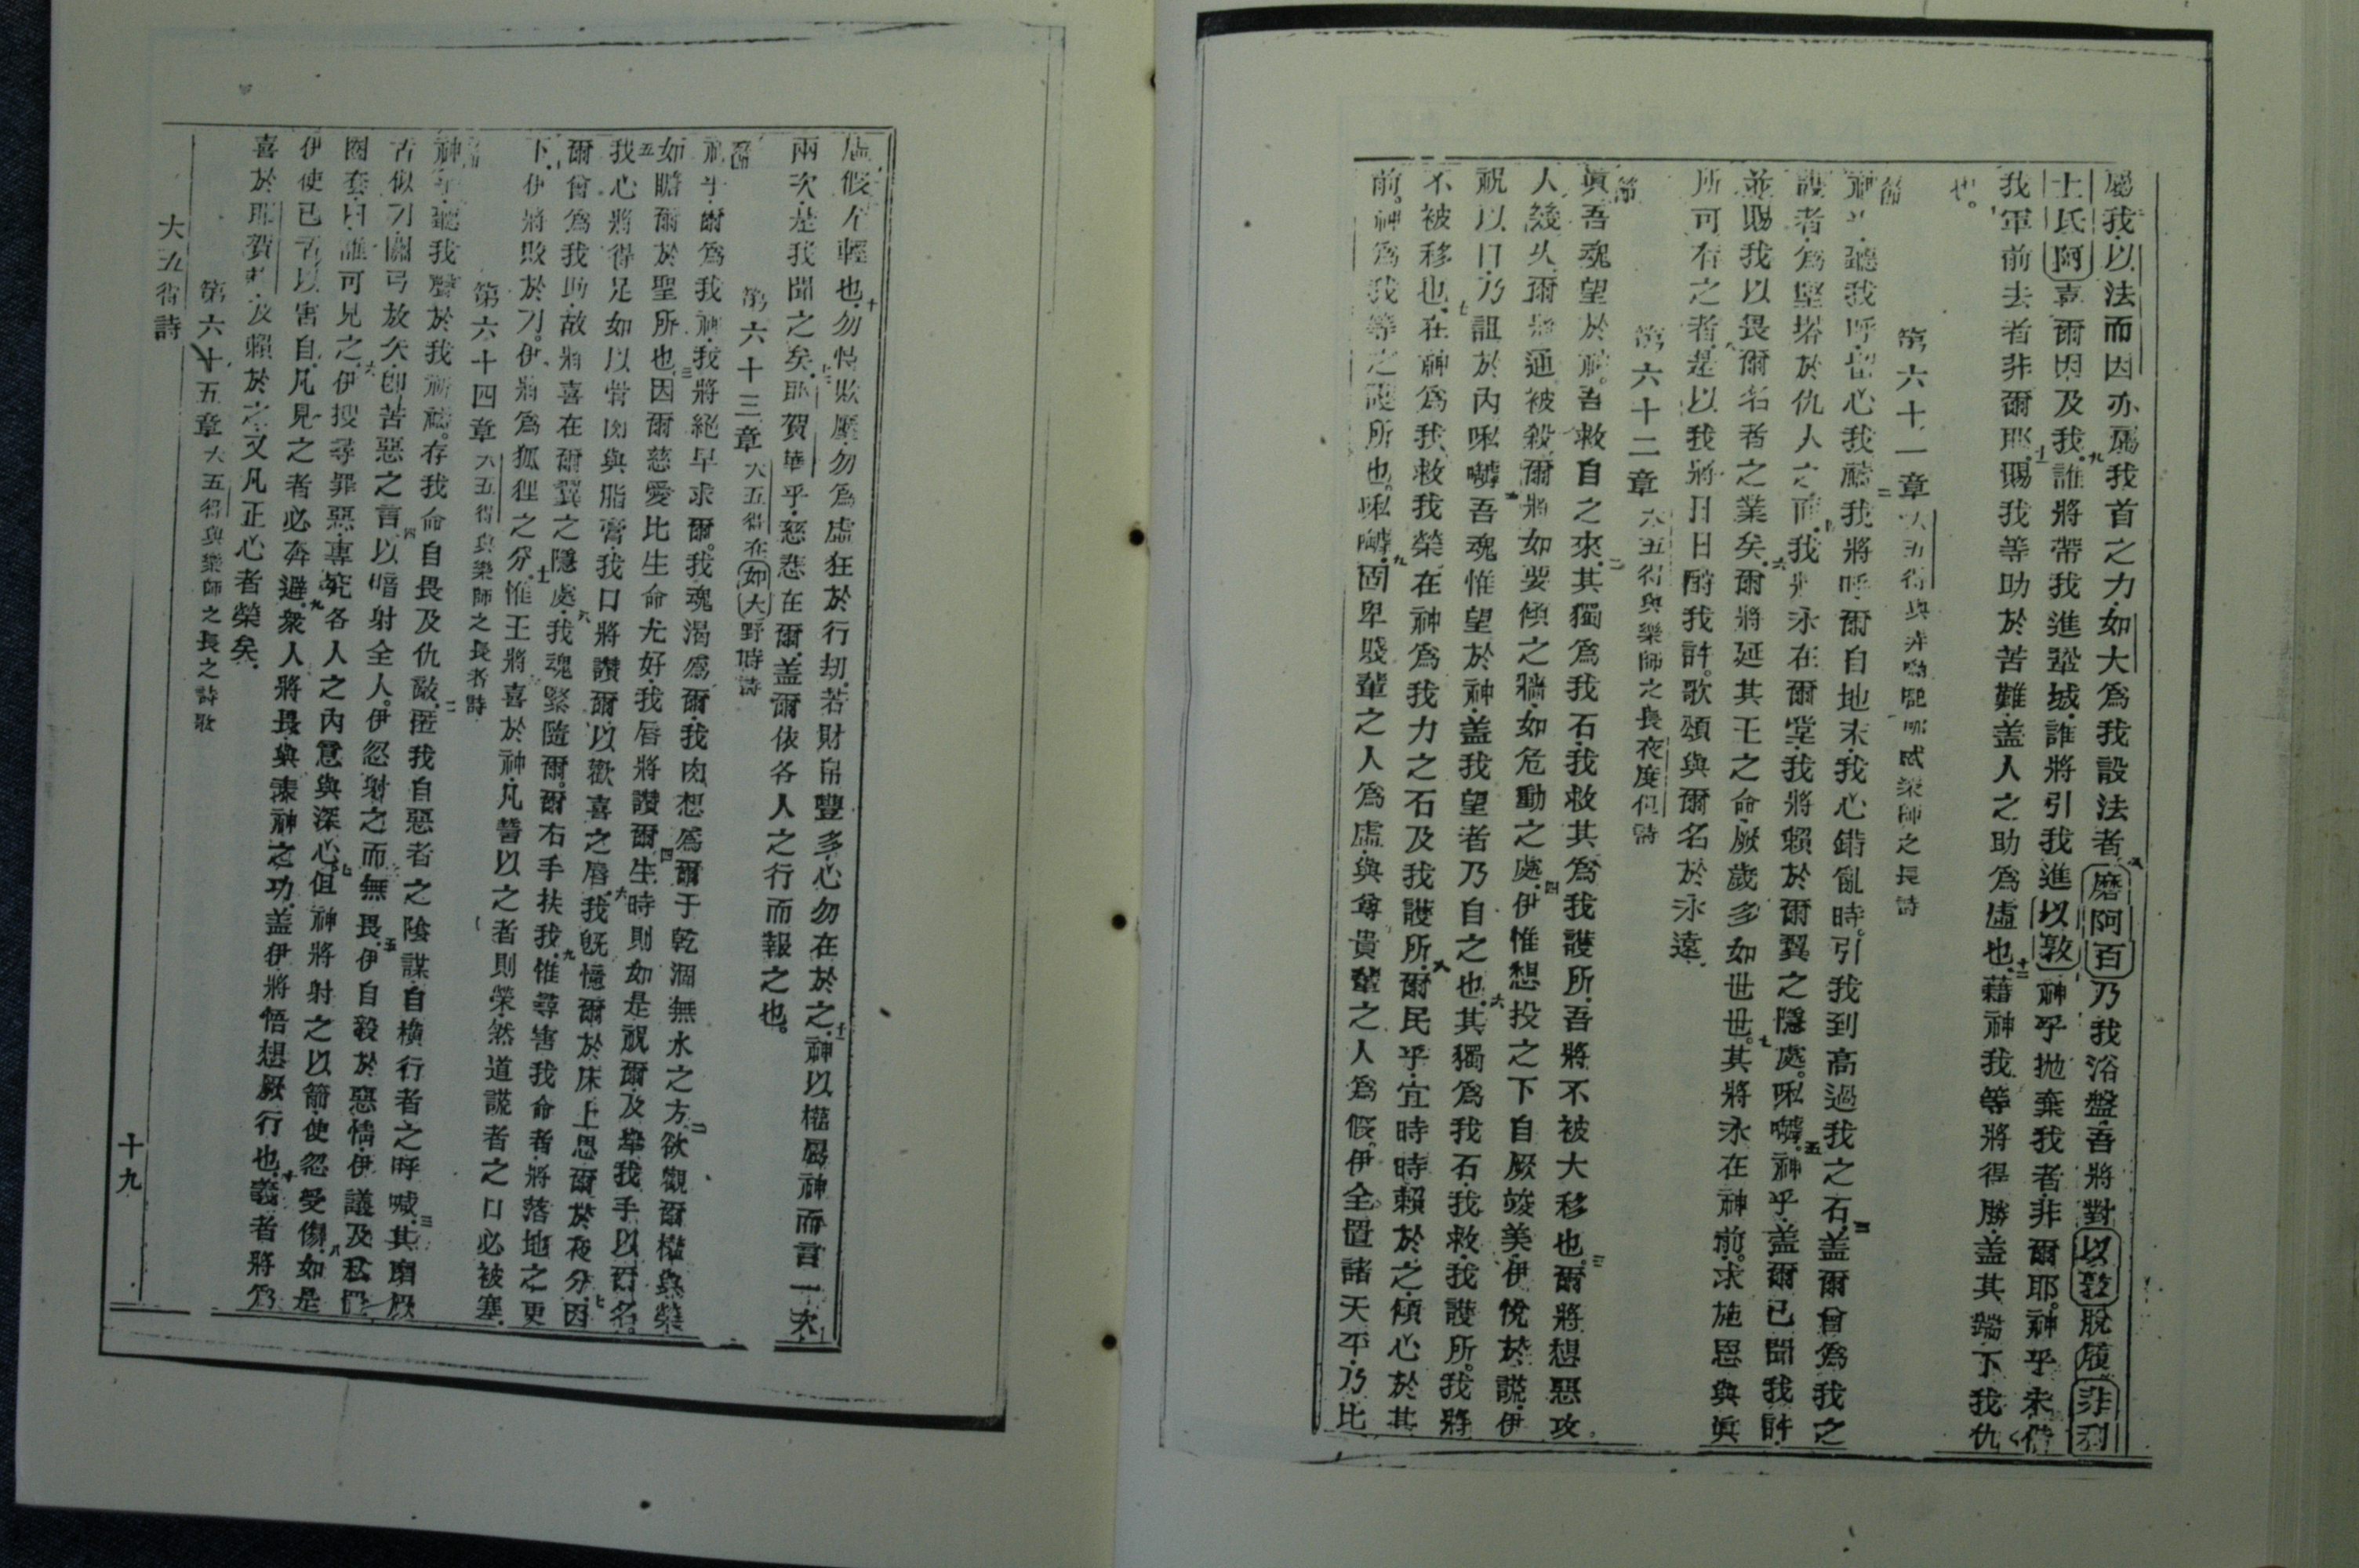 屬我以法而因亦屬我首之力如大為我設法者八磨阿百乃我浴盤吾將對以敦脫屐非利
士氏阿喜爾因及我九誰將帶我進鞏城誰將引我進以敦十神乎拋棄我者非爾耶神乎未偕
我軍前去者非爾耶十一賜我等助於苦難蓋人之助為虛也十二藉神我等將得勝蓋其踹下我仇
也
第六十一章大五得與弄樂師之長詩
節神乎聽我呼留心我禱二我將呼爾自地末我心錯亂時引我到高過我之石三蓋爾曾為我之
護者為堅塔於仇人之前四我將永在爾堂我將賴於爾翼之隱處𠲅㘔五神乎蓋爾已聞我許
並賜我以畏爾名者之業矣六爾將延其王之命厥歲多如世世七其將永在神前求施恩與真
所可存之者八是以我將日日酧我許歌頌與爾名於永遠
第六十二章大五得與樂師之長夜度但詩
節真吾魂望於神吾救自之來二其獨為我石我救其為我護所吾將不被大移也三爾將想惡攻
人幾久爾皆通被殺爾將如要傾之牆如危動之處四伊惟想投之下自厥竣美伊悅於謊伊
祝以口乃詛於內𠲅㘔五吾魂惟望於神蓋我望者乃自之也六其獨為我石我救我護所我將
不被移也七在神為我救我榮在神為我力之石及我護所八爾民乎宜時時賴於之傾心於其
前神為我等之護所也𠲅㘔九固卑賤輩之人為虛與尊貴輩之人為假伊全置諸天平乃比
虛假尤輕也十勿恃欺壓勿為虛狂於行刧若財帛豐多心勿在於之十一神以權屬神而言一次
兩次是我聞之矣十二耶賀華乎慈悲在爾蓋爾依各人之行而報之也
第六十三章大五得在如大野時詩
節神乎爾為我神我將絕早求爾我魂渴為爾我肉想為爾于乾涸無水之方二欲觀爾權與榮
如瞻爾於聖所也三因爾慈愛比生命尤好我唇將讚爾四生時則如是祝爾及舉我手以爾名
五我心將得足如以骨肉與脂膏我口將讚爾以歡喜之唇六我旣憶爾於床上思爾於夜分七因
爾曾為我助故將喜在爾翼之隱處八我魂緊隨爾爾右手扶我九惟尋害我命者將落地之更
下十伊將敗於刀伊將為狐狸之分十一惟王將喜於神凡誓以之者則榮然道謊者之口必被塞
第六十四章大五得與樂師之長者詩
節神乎聽我聲於我祈禱存我命自畏及仇敵二匿我自惡者之陰謀自橫行者之呼喊三其磨厥
舌似刀關弓放矢卽苦惡之言四以暗射全人伊忽射之而無畏五伊自毅於惡情伊議及私置
圈套曰誰可見之六伊搜尋罪惡專究各人之內意與深心七但神將射之以箭使忽受傷八如是
伊使己舌以害自凡見之者必奔避九衆人將畏與凑神之功蓋伊將悟想厥行也十義者將為
喜於耶賀華及賴於之又凡正心者榮矣
第六十五章大五得與樂師之長之詩歌
大五得詩
十九